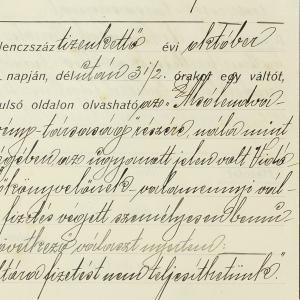 lenczszáz tizenkettő évi október
napján, délután 3 1/2. órakor egy váltót,
ulsó oldalon olvasható az
társaság" részére, nála mint
gében az ugyanott jelen volt
könyvelőinek valamennyi vál-
fizetés végett személyesen bemu-
övetkező választ nyertem:
ltára fizetést nem teljesíthetünk".